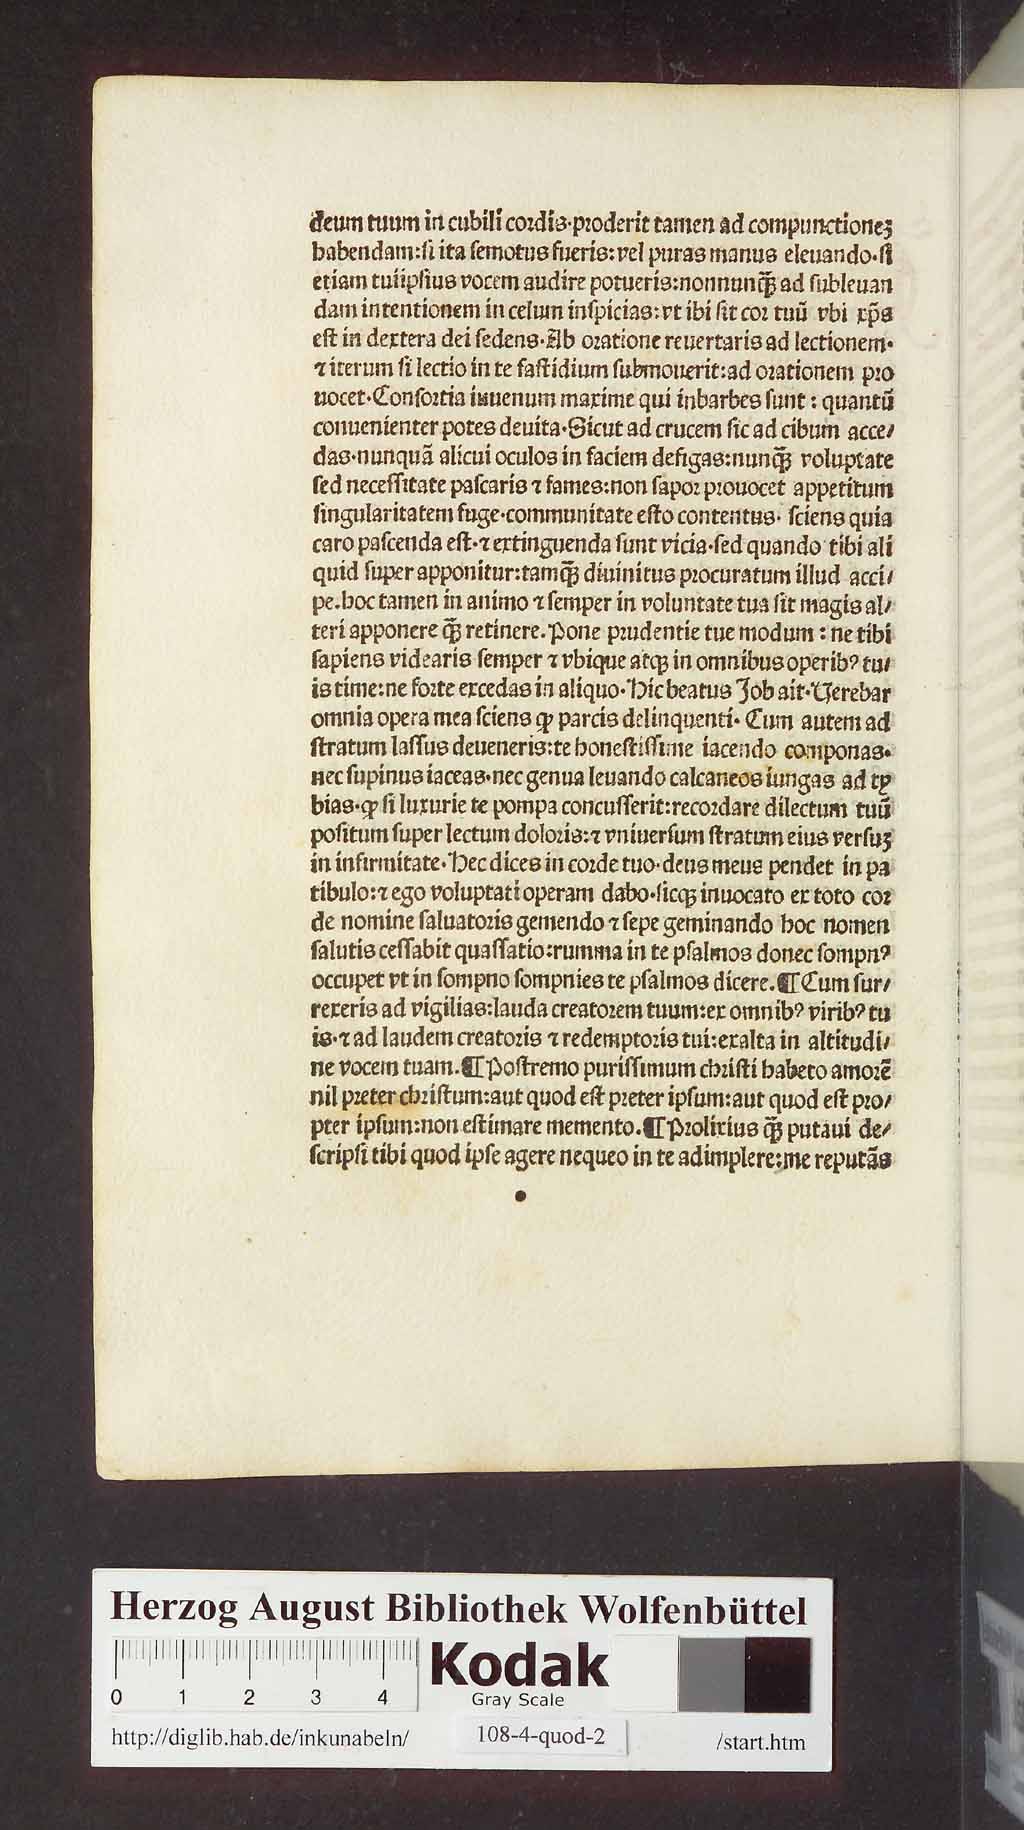 deum tuum in cubili cordis·proderit tamen ad compunctioneʒ
habendam:si ita semotus fueris:vel puras manus eleuando·si
etiam tuiipsius vocem audire potueris:nonnunqꝫ̃ ad subleuan
dam intentionem in celum inspicias:vt ibi sit cor tuū vbi xp̃s
est in dextera dei sedens·Ab oratione reuertaris ad lectionem·
⁊ iterum si lectio in te fastidium submouerit:ad orationem pro
uocet·Consortia iuuenum maxime qui inbarbes sunt : quantū
conuenienter potes deuita·Sicut ad crucem sic ad cibum acce/
das·nunquā alicui oculos in faciem defigas:nunqꝫ̃ voluptate
sed necessitate pascaris ⁊ fames:non sapor prouocet appetitum
singularitatem fuge·communitate esto contentus· sciens quia
caro pascenda est·⁊ extinguenda sunt vicia·sed quando tibi ali
quid super apponitur:tamqꝫ̃ diuinitus procuratum illud acci/
pe.hoc tamen in animo ⁊ semper in voluntate tua sit magis al/
teri apponere qꝫ̃ retinere.Pone prudentie tue modum : ne tibi
sapiens videaris semper ⁊ vbique atqꝫ in omnibus operibꝰ tu/
is time:ne forte excedas in aliquo·Hic beatus Job ait·Verebar
omnia opera mea sciens ꝙ parcis delinquenti· Cum autem ad
stratum lassus deueneris:te honestissime iacendo componas·
nec supinus iaceas·nec genua leuando calcaneos iungas ad ty
bias·ꝙ si luxurie te pompa concusserit:recordare dilectum tuū
positum super lectum doloris:⁊ vniuersum stratum eius versuʒ
in infirmitate·Hec dices in corde tuo·deus meus pendet in pa
tibulo:⁊ ego voluptati operam dabo·sicqꝫ inuocato ex toto cor
de nomine saluatoris gemendo ⁊ sepe geminando hoc nomen
salutis cessabit quassatio:rumma in te psalmos donec sompnꝰ
occupet vt in sompno sompnies te psalmos dicere.¶ Cum sur/
rexeris ad vigilias:lauda creatorem tuum:ex omnibꝰ viribꝰ tu
is·⁊ ad laudem creatoris ⁊ redemptoris tui:exalta in altitudi/
ne vocem tuam.¶ Postremo purissimum christi habeto amorē
nil preter christum:aut quod est preter ipsum:aut quod est pro/
pter ipsum:non estimare memento.¶ Prolixius qꝫ̃ putaui de/
scripsi tibi quod ipse agere nequeo in te adimplere:me reputās
Herzog August Bibliothek Wolfenbüttel
Kodak
Gray Scale
0 1 2 3 4
http://diglib.hab.de/inkunabeln/ 108-4-quod-2 /start.htm